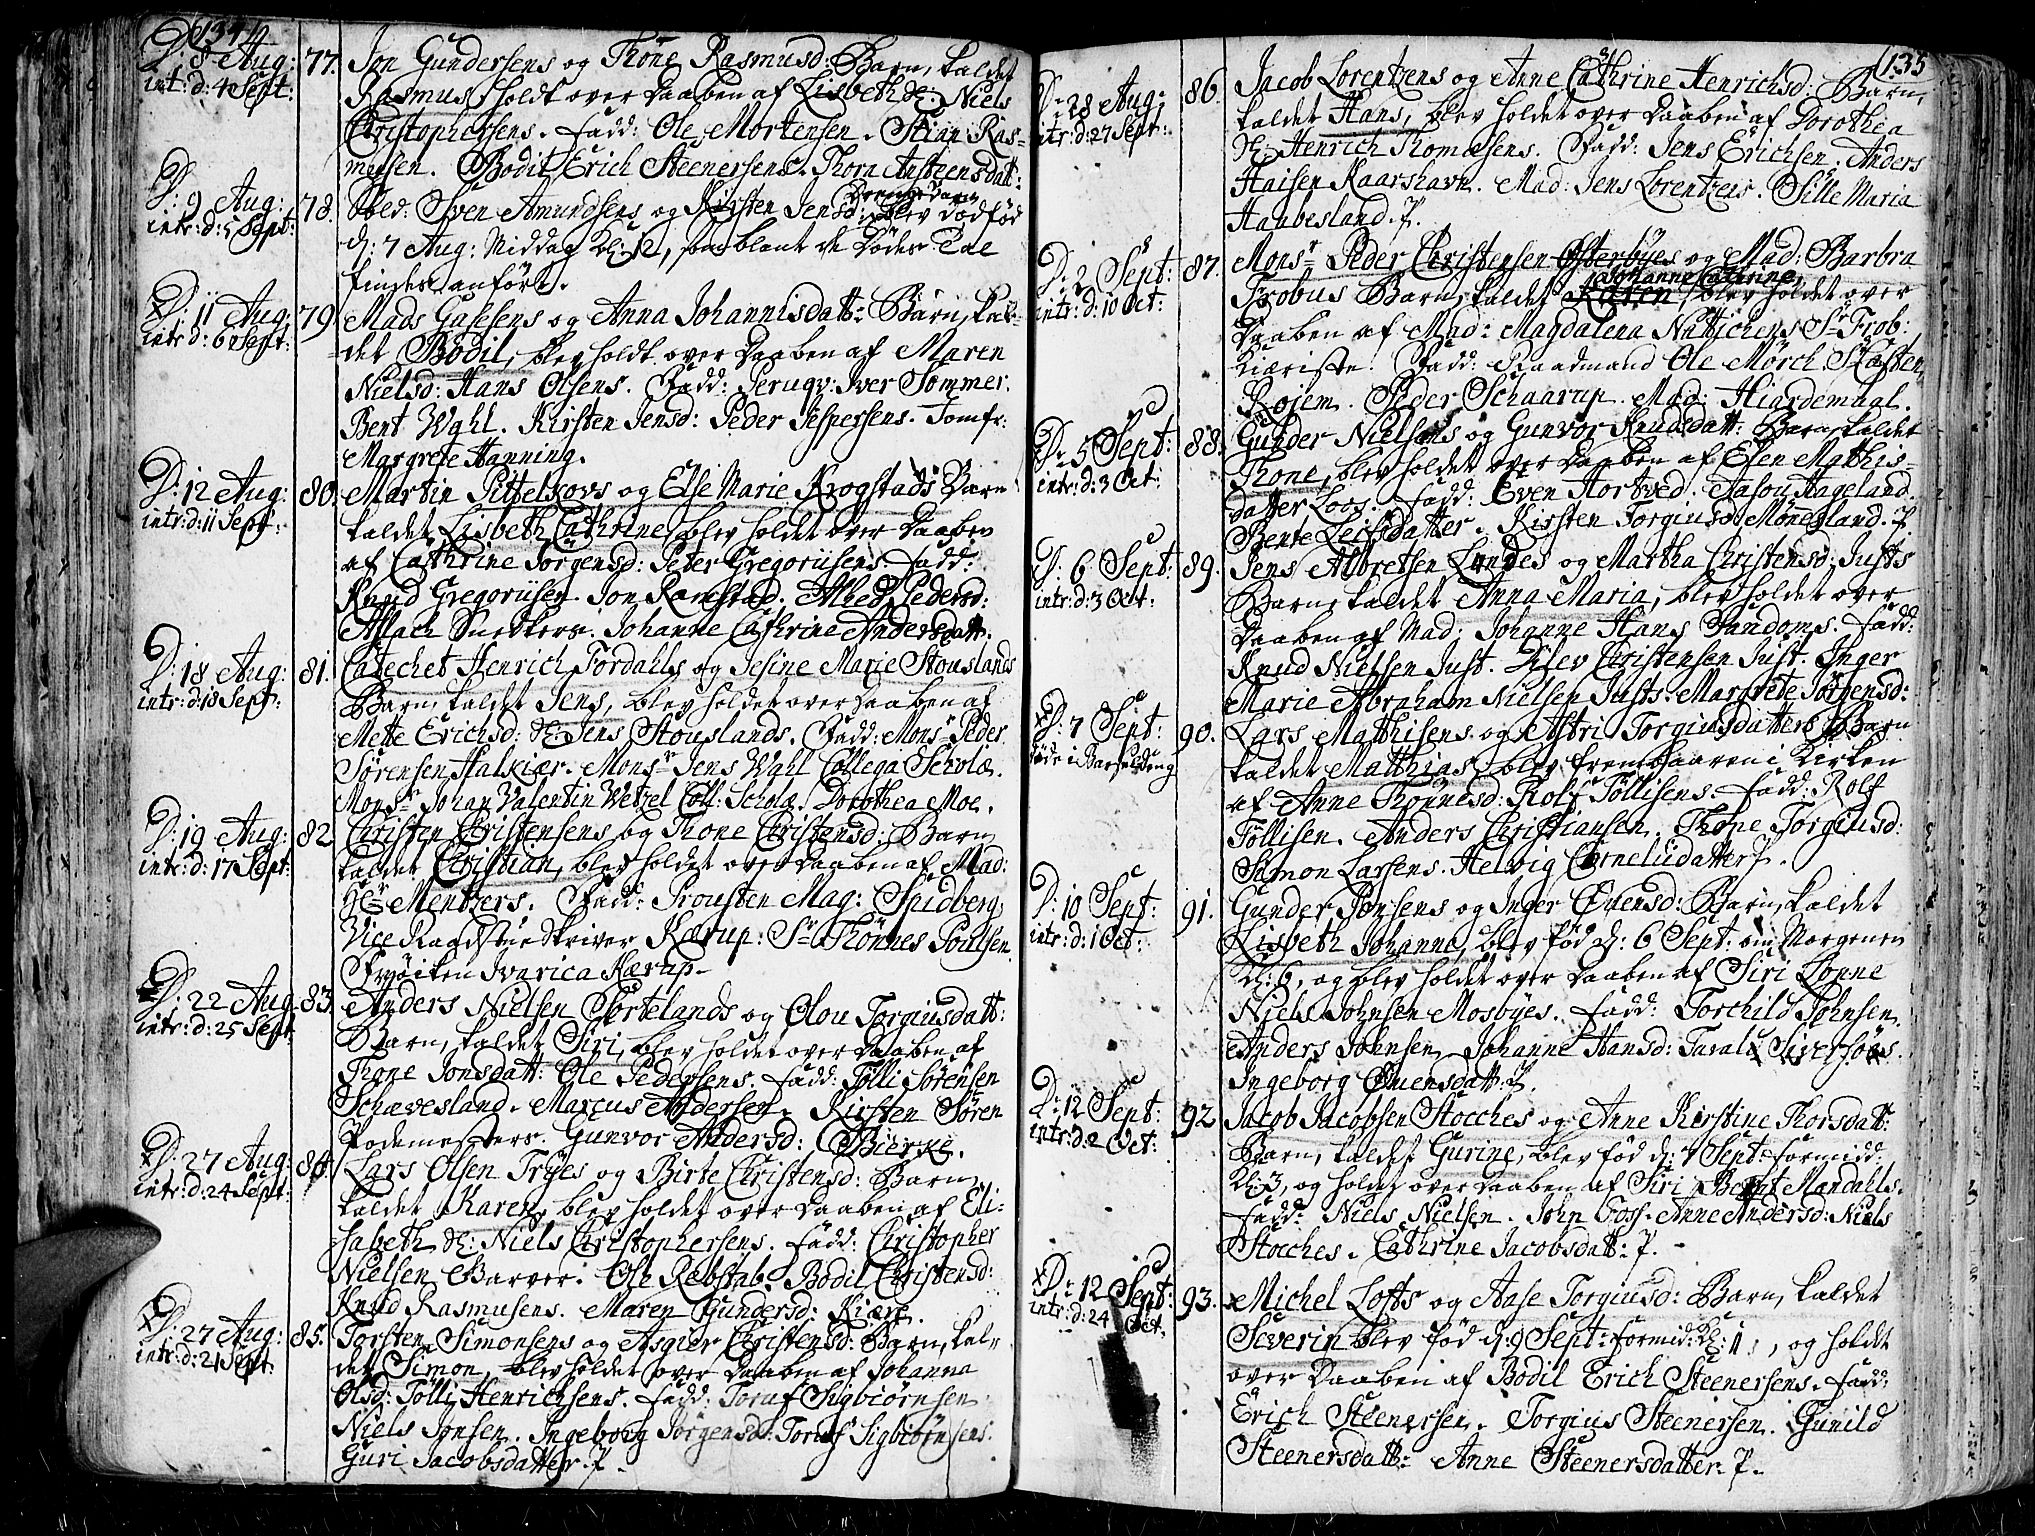 134
D: 8 Aug: 77. Jon Gundersens og Thone Rasmusd: Barn, kaldet
intr: d: 4 Sept: Rasmus, holdt over Daaben af Lisbeth Niels
Christophersens. Fadd: Ole Mortensen. Stian Ras-
musen. Bodil Erich Steenersens. Thorn Ansteensdatt:
D: 9 Aug: 78. Sven Amundsens og Kirsten Jensd: Drenge Barn blev dødfød
intr: d: 5 Sept: d: 7 Aug: Middag Kl: 12, som blant de Dødes Tal
findes anført.
D: 11 Aug: 79. Mads Gasesens og Anna Johannisdatt: Barn, kal-
intr: d: 6 Sept: det Bodil, blev holdt over Daaben af Maren
Nielsd: Hans Olsens. Fadd: Peruqv: Iver Sommer.
Bent Wahl. Kirsten Jensd: Peder Jespersens. Jomfr:
Margrete Hanning.
D: 12 Aug: 80. Martin Pittelkovs og Else Marie Krogstads Barn
intr: d: 11 Sept: kaldet Lisbeth Cathrine, blev holdet over Daaben
af Cathrine Jørgensd: Peter Gregoriisens. Fadd:
Knud Gregoriisen. Jon Ramstad. Alhed Pedersd:
Aslach Snedkers. Johanne Cathrine Andersdatt.
D: 18 Aug: 81. Catechet Henrich Tordahls og Jesine Marie Stouslands
intr: d: 18 Sept: Barn, kaldet Jens, blev holdet over Daaben af
Mette Erichsd: Jens Stouslands. Fadd: Monsr Peder
Sørensen Halkiær. Monsr Jens Wahl Collega Scholæ.
Monsr Johan Valentin Wetzel Coll: Scholæ. Dorothea Moe.
D: 19 Aug: 82. Christen Christensens og Thone Christensd: Barn
intr: d: 17 Sept: kaldet Christian, blev holdet over Daaben af Mad:
Mentzers. Fadd: Prousten Mag: Spidberg.
Vice Raadstueskriver Kærup: Sr Thönnes Poulsen.
Frøiken Ivarica Kærup.
D: 22 Aug 83. Anders Nielsen Sortelands og Olou Torgiusdatt:
intr: d: 25 Sept Barn, kaldet Siri, blev holdet over Daaben af
Thone Jonsdatt: Ole Pedersens. Fadd: Tölli Sørensen
Schævesland. Marcus Andersen. Kirsten Søren
Podemesters. Gunvor Andersd: Bierke.
D: 27 Aug: 84. Lars Olsen Tryes og Birte Christensd: Barn
intr: d: 24 Sept: kaldet Karen, blev holdet over Daaben af Eli-
sabeth Niels Christophersens. Fadd: Christopher
Nielsen Garver. Ole Rebslab. Bodil Christensd:
Knud Rasmusens. Maren Gundersd: Kiær.
D: 27 Aug: 85. Torsten Simonsens og Asgier Christensd: Barn, kal-
intr: d: 21 Sept: det Simon, blev holdet over Daaben af Johanna
Olsd: Tölli Henrichsens. Fadd: Toraf Sigbiørnsen
Niels Jonsen. Ingeborg Jörgensd: Toraf Sigbiørnsens.
Guri Jacobsdatter. P.
135
D: 28 Aug: 86. Jacob Lorentzens og Anne Cathrine Henrichsd: Barn,
intr: d: 27 Sept: kaldet Hans, blev holdet over Daaben af Dorothea
Henrich Thomesens. Fadd: Jens Erichsen. Anders
Haisen Kaarshavn. Mad: Jens Lorentzens. Sille Maria
Haabesland. P.
D: 2 Sept: 87. Monsr Peder Christensen Østerbyes og Mad: Barbra
intr: d: 10 Oct: Frobus Barn, kaldet Karen Johanne Cathrine, blev holdet over
Daaben af Mad: Magdalena Nüttichens Sr Frob:
Kiæriste. Fadd: Raadmand Ole Mørch. Sr Casten
Röjem. Peder Schaarup. Mad: Hiardemaal.
D: 5 Sept: 88. Gunder Nielsens og Gunvor Knudsdatt: Barn kaldet
intr: d: 3 Oct: Thone, blev holdet over Daaben af Elen Mathis-
datter Loos. Fadd: Even Hortved. Aasou Hageland.
Bente Leifsdatter. Kirsten Torgiusd: Mønnesland. P.
D: 6 Sept: 89. Jens Albretsen Lundes og Martha Christensd: Justs
intr: d: 3 Oct: Barn, kaldet Anna Maria, blev holdet over
Daaben af Mad: Johanne Hans Fandoms. Fadd:
Knud Nielsen Just. Ditlev Christensen Just. Inger
Marie Abraham Nielsen Justs. Margrete Jörgensd:
D: 7 Sept: 90. Lars Matthisens og Astri Torgiusdatters Barn
døde i Barselseng kaldet Matthias, blev frembaaren i Kirken
af Anne Thönnesd: Rolf Töllisens. Fadd: Rolf
Töllisen. Anders Christiansen. Thone Torgiusd:
Simon Larsens. Helvig Corneliidatter. P.
D: 10 Sept: 91. Gunder Jonsens og Inger Evensd: Barn, kaldet
intr: d: 1 Oct: Lisbeth Johanna, blev fød D: 6 Sept: om Morgenen
Kl: 6, og blev holdet over Daaben af Siri Lonne
Niels Johnsen Mosbyes. Fadd: Torchild Johnsen.
Anders Johnsen. Johanne Hansd: Taral
Ingeborg Evensdatt: P.
D: 12 Sept: 92. Jacob Jacobsen Stocches og Anne Kirstine Thorsdatt:
intr: d: 2 Oct: Barn, kaldet Gurine, blev fød d: 7 Sept: formidd:
Kl: 3, og holdet over Daaben af Siri Bernt Mandalls.
Fadd: Niels Nielsen. John Foss. Anne Andersd: Niels
Stocches. Cathrine Jacobsdatt: P.
D: 12 Sept: 93. Michel Lofts og Aase Torgiusd: Barn, kaldet
intr: d: 24 Oct. Severin blev fød d: 9 Sept: formid: Kl: 11, og holdt
over Daaben af Bodil Erich Steenersens. Fadd:
Erich Steenersen. Torgius Steenersen. Gunild
Steenersdatt: Anne Steenersdatter. P.